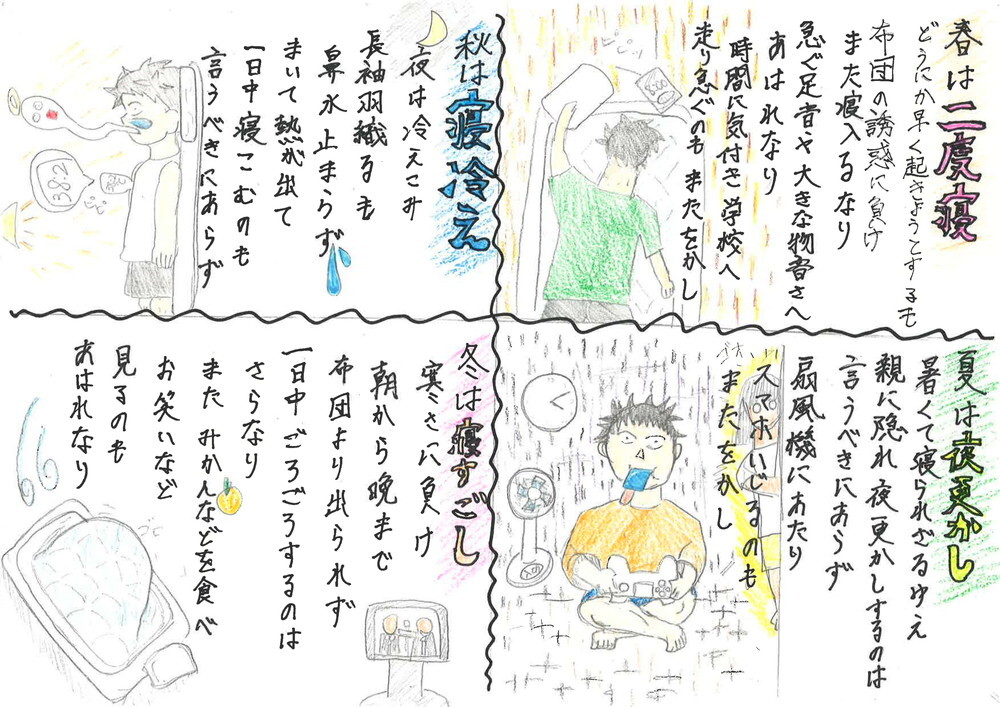 春は二度寝
どうにか早く起きようとするも
布団の誘惑に負け
また寝入るなり
急ぐ足音や大きな物音さへ
あはれなり
時間に気付き学校へ
走り急ぐのもまたをかし
夏は夜更かし
暑くて寝られざるゆえ
親に隠れ夜更かしするのは
言うべきにあらず
扇風機にあたり
スマホいじるのも
またをかし
秋は寝冷え
夜は冷えこみ
長袖羽織るも
鼻水止まらず
まいて熱が出て
一日中寝こむのも
言うべきにあらず
38.2
冬は寝すごし
寒さに負け
朝から晩まで
布団より出られず
一日中ごろごろするのは
さらなり
またみかんなどを食べ
お笑いなど
見るのも
あはれなり